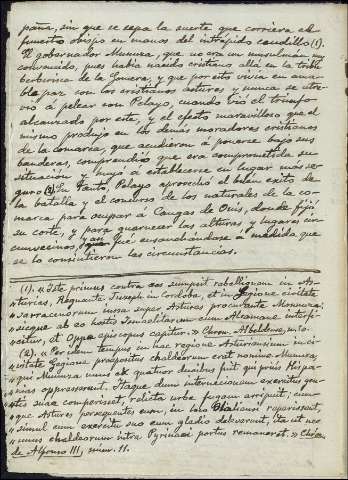 paña, sin que se sepa la suerte que corriera el
funesto obispo en manos del intrépido caudillo (1).
El gobernador Munuza, que no era un musulmán muy
convencido, pues había nacido cristiano allá en la tribu
berberisca de la Gomera, y que por esto vivía en ama-
ble paz con los cristianos astures y nunca se atre-
vió á pelear con Pelayo, cuando vió el triunfo
alcanzado por este, y el efecto maravilloso que el
mismo produjo en los demás moradores cristianos
de la comarca, que acudieron á ponerse bajo sus
banderas, comprendió que era comprometida su
situación y huyó á establecerse en lugar más se-
guro (2). En tanto, Pelayo aprovechó el buen éxito de
la batalla y el concurso de los naturales de la co-
marca para ocupar á Cangas de Onis, donde fijó
su corte, y para guarnecer las alturas y lugares cir-
cunvecinos, que ensanchándose á medida que
se lo consintieron las circunstancias.
(1). «Iste primus contra eos sumpsit rebellionem in As-
turias, Regnante Juseph in Cordoba, et in Legione civitate
Sarracenorum iussa super Astures procurante Monnuza
sicque ab eo hostis Ismaelitarum cum Alcamane interfi-
citur, et Oppa episcopus capitur.» Chron. Albeldense, n.
(2). «Per idem tempus in hac regione Asturiensium in ci-
vitate Gegione præpositus chaldæorum erat nomine Munuza,
qui Munuza unus ex quatuor ducibus fuit qui prius Hispa-
nias oppresserunt. Itaque dum internecionem exercitus gen-
tis suæ comperisset, relicta urbe fugam arripuit; cum-
que Astures persequentes eum, in loco Olaliensi reperissent,
simul cum exercitu suo eum gladio deleverunt, ita ut nec
unus chaldæorum intra Pyrinæi portus remaneret.» Chron.
de Alfonso III, núm. 11.